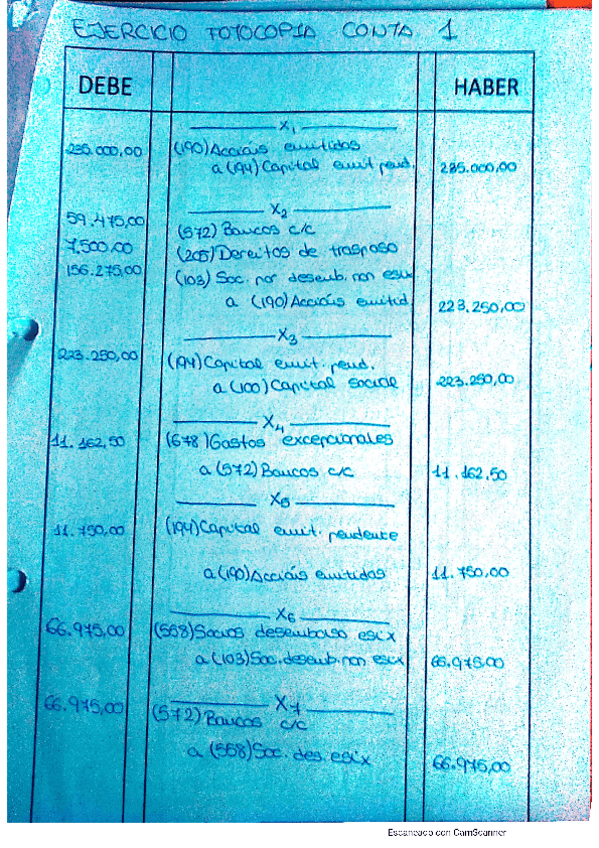 EJERCICIO FOTOCOPIA CONTA 1
DEBE HABER
X1
235.000,00 (190) Accións emitidas
a (194) Capital emit pend. 235.000,00
X2
59.475,00 (572) Bancos c/c
7.500,00 (205) Dereitos de traspaso
156.275,00 (103) Soc. por desemb. non esix
a (190) Accións emitid 223.250,00
X3
223.250,00 (194) Capital emit. pend.
a (100) Capital social 223.250,00
X4
11.162,50 (678) Gastos excepcionales
a (572) Bancos c/c 11.162.50
X5
11.750,00 (194) Capital emit. pendente
a (190) Accións emitidas 11.750,00
X6
66.975,00 (558) Socios desembolso esix
a (103) Soc. desemb. non esix 66.975.00
X7
66.975,00 (572) Bancos c/c
a (558) Soc. des. esix 66.975,00
Escaneado con CamScanner